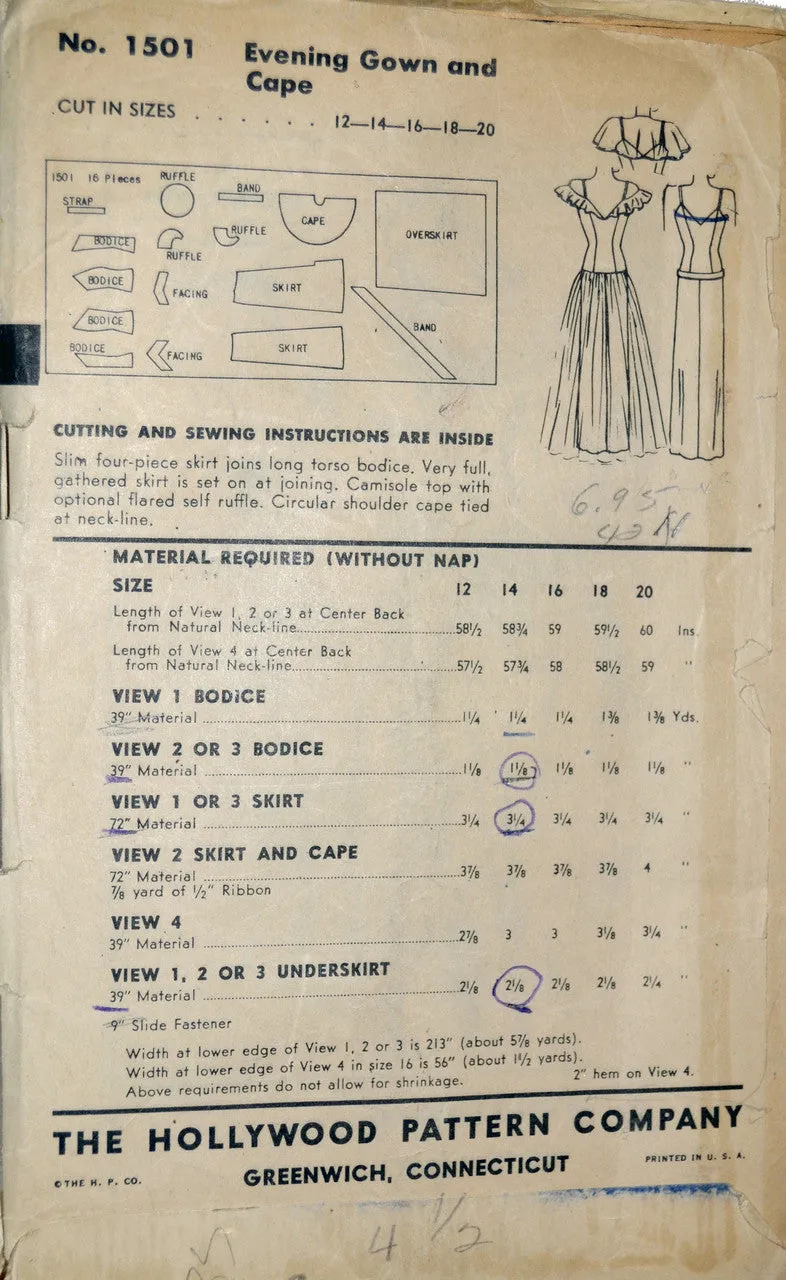 No. 1501 Evening Gown and
Cape
CUT IN SIZES . . . . . . 12—14—16—18—20
1501 16 Pieces
RUFFLE
STRAP
BAND
CAPE
OVERSKIRT
BODICE
RUFFLE
RUFFLE
BODICE
FACING
SKIRT
BODICE
BAND
BODICE
FACING
SKIRT
CUTTING AND SEWING INSTRUCTIONS ARE INSIDE
Slim four-piece skirt joins long torso bodice. Very full,
gathered skirt is set on at joining. Camisole top with
optional flared self ruffle. Circular shoulder cape tied
at neck-line.
6.95
42 N
MATERIAL REQUIRED (WITHOUT NAP)
SIZE 12 14 16 18 20
Length of View 1, 2 or 3 at Center Back
from Natural Neck-line 58½ 58¾ 59 59½ 60 Ins.
Length of View 4 at Center Back
from Natural Neck-line 57½ 57¾ 58 58½ 59 "
VIEW 1 BODICE
39" Material 1¼ 1¼ 1¼ 1⅜ 1⅜ Yds.
VIEW 2 OR 3 BODICE
39" Material 1⅛ 1⅛ 1⅛ 1⅛ 1⅛ "
VIEW 1 OR 3 SKIRT
72" Material 3¼ 3¼ 3¼ 3¼ 3¼ "
VIEW 2 SKIRT AND CAPE
72" Material 3⅞ 3⅞ 3⅞ 3⅞ 4 "
⅞ yard of ½" Ribbon
VIEW 4
39" Material 2⅞ 3 3 3⅛ 3¼ "
VIEW 1, 2 OR 3 UNDERSKIRT
39" Material 2⅛ 2⅛ 2⅛ 2⅛ 2¼ "
9" Slide Fastener
Width at lower edge of View 1, 2 or 3 is 213" (about 5⅞ yards).
Width at lower edge of View 4 in size 16 is 56" (about 1½ yards).
Above requirements do not allow for shrinkage. 2" hem on View 4.
THE HOLLYWOOD PATTERN COMPANY
GREENWICH, CONNECTICUT
©THE H. P. CO.
PRINTED IN U. S. A.
4 1/2